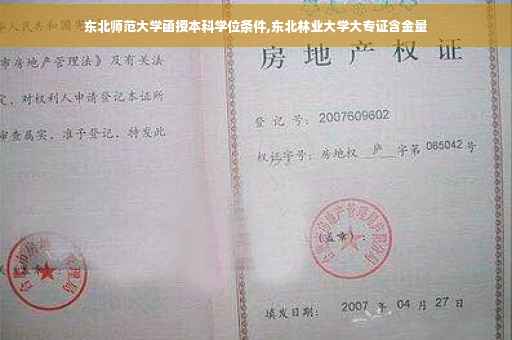 东北师范大学函授本科学位条件,东北林业大学大专证含金量
人民共和国宪
市房地产管理法》及有关法
定，对权利人申请登记本证所
审查属实，准予登记，特发此
房地产权证
登记号：2007609602
权证字号：房地权 庐 字第 085042 号
(盖章)：
填发日期：2007 年 04 月 27 日